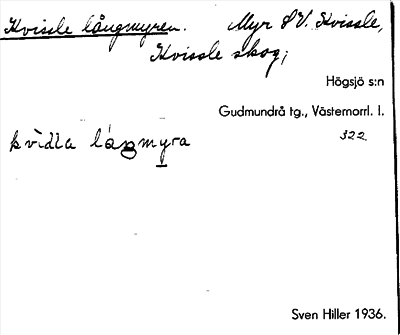 Kvissle långmyren. Myr SV. Kvissle,
Kvissle skog;
Högsjö s:n
Gudmundrå tg., Västernorrl. l.
322
Sven Hiller 1936.